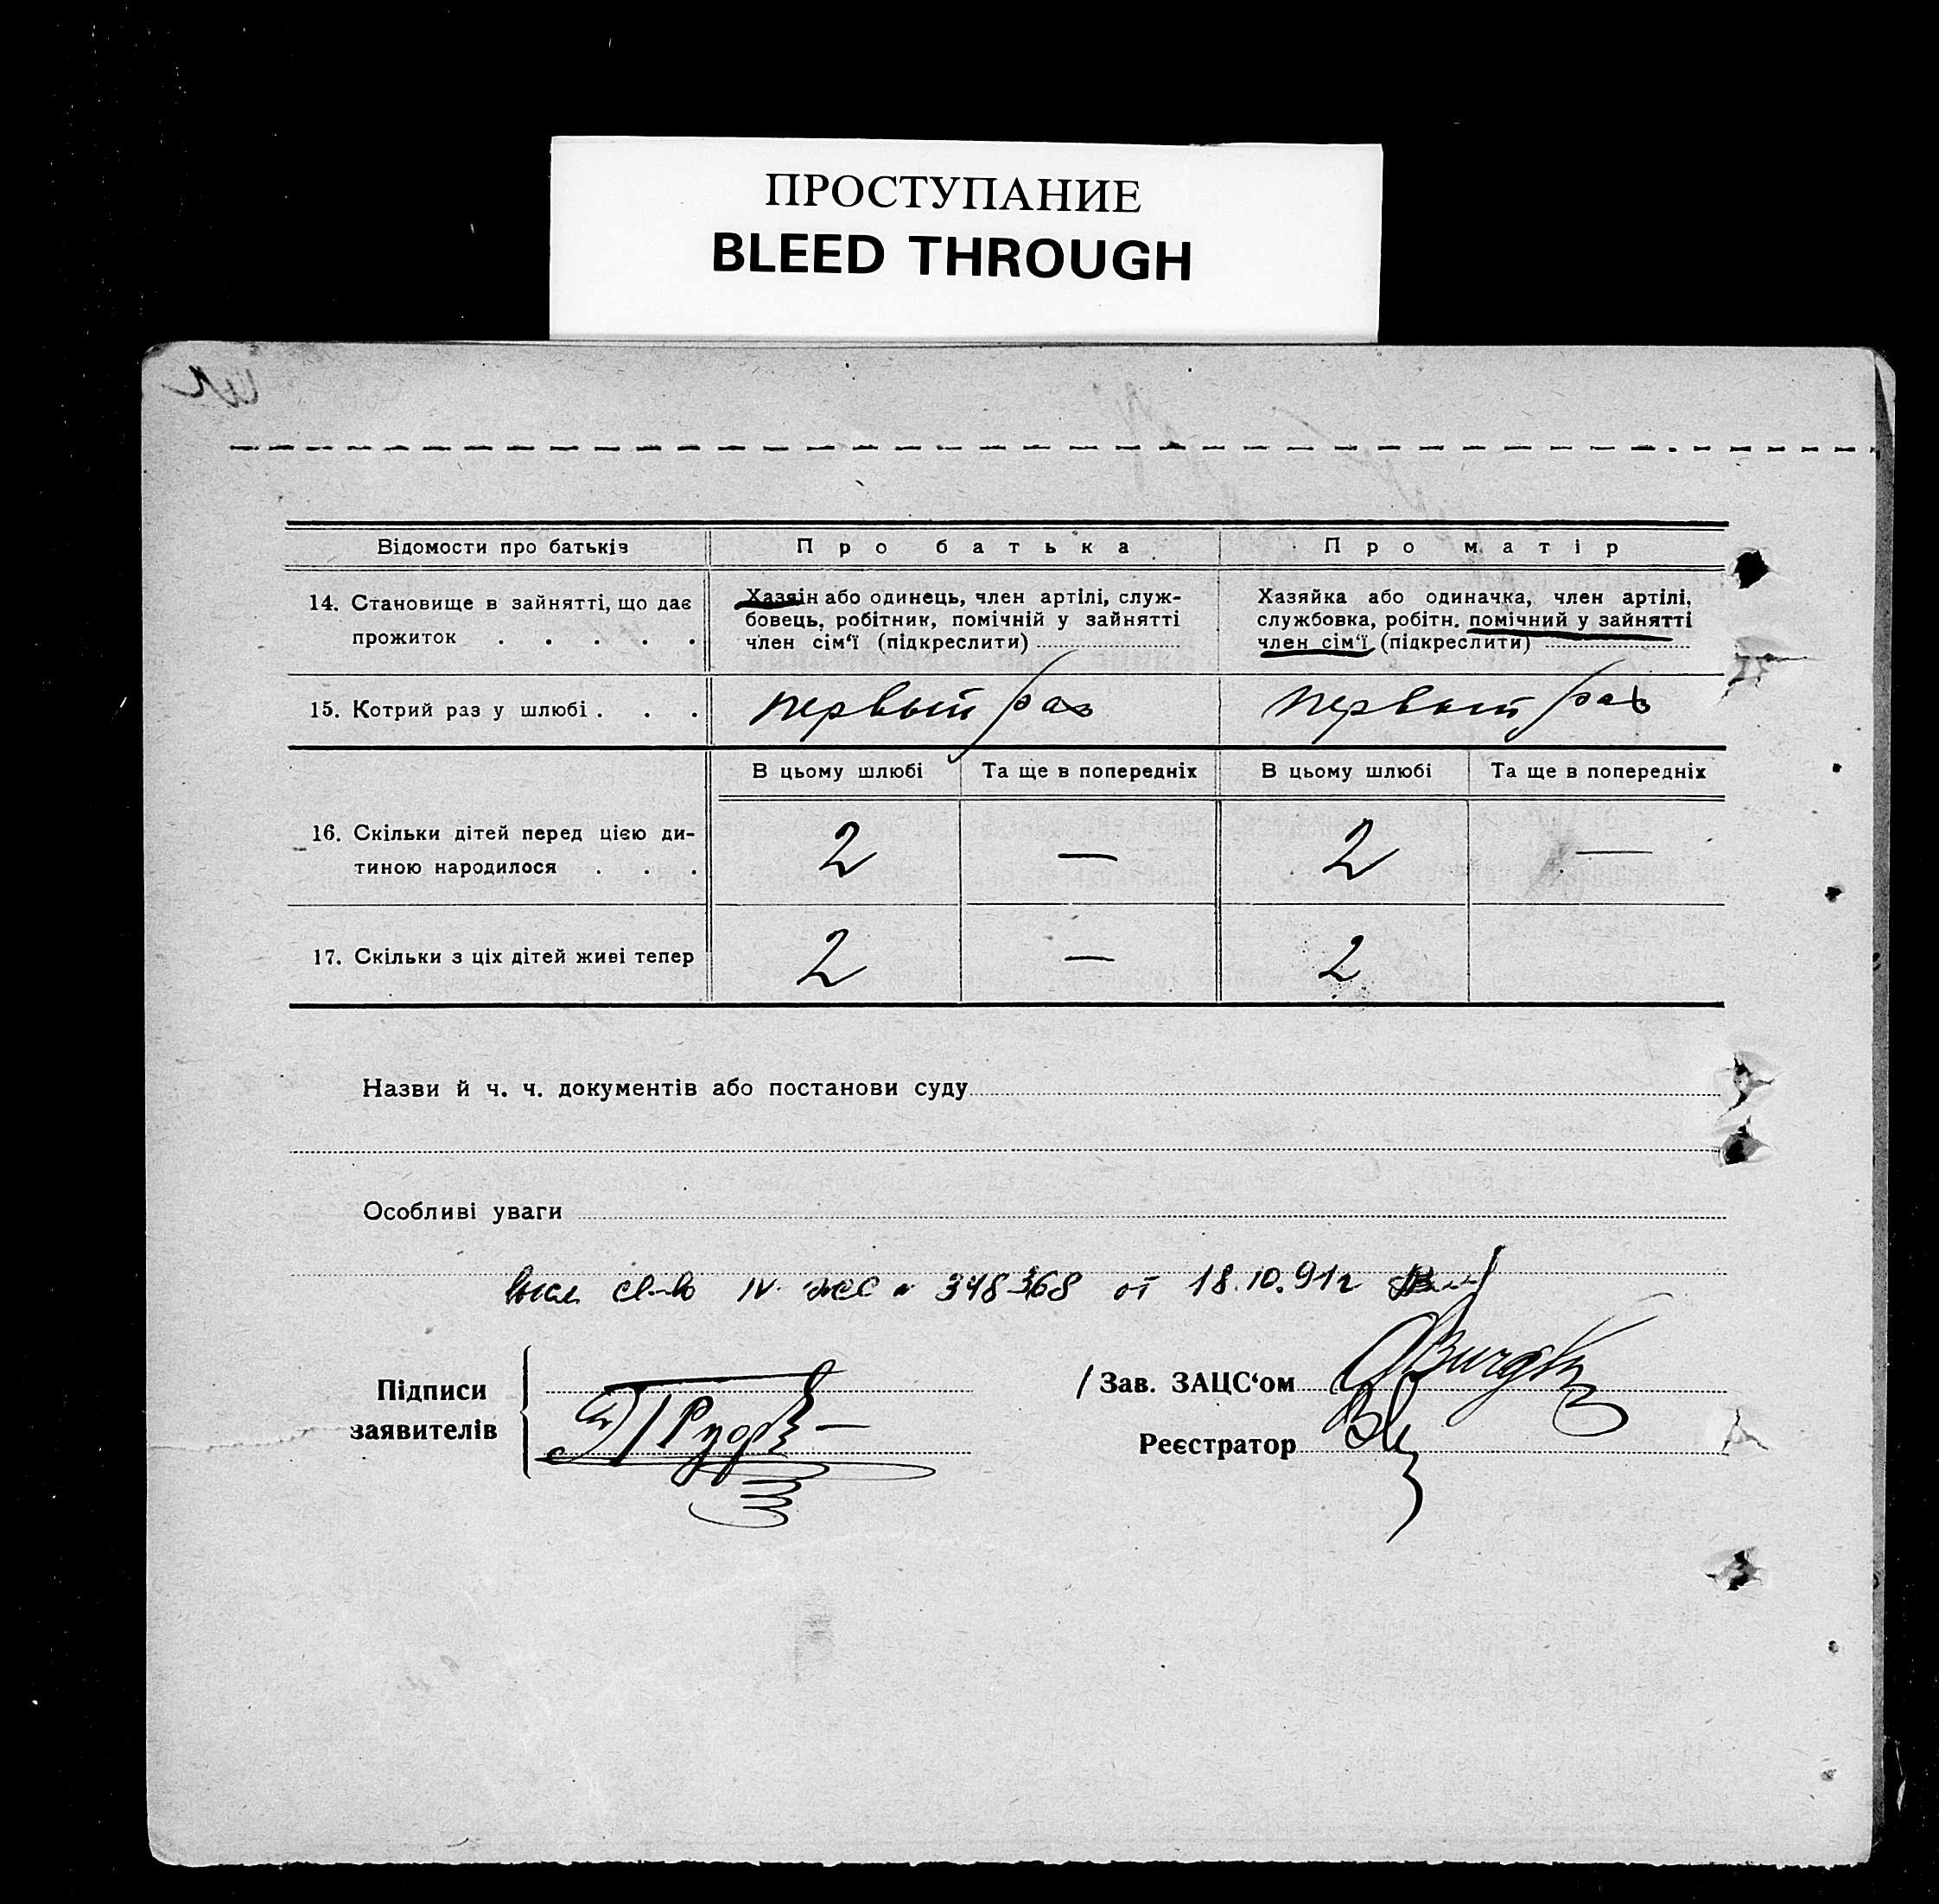 ПРОСТУПАНИЕ
BLEED THROUGH
Відомости про батьків
Про батька
Про матір
14. Становище в зайнятті, що дає
прожиток . . . . .
Хазяїн або одинець, член артілі, служ-
бовець, робітник, помічній у зайнятті
член сім‘ї (підкреслити)
Хазяйка або одиначка, член артілі,
службовка, робітн. помічний у зайнятті
член сім‘ї (підкреслити)
15. Котрий раз у шлюбі . . .
первый раз
первый раз
В цьому шлюбі
Та ще в попередніх
В цьому шлюбі
Та ще в попередніх
16. Скільки дітей перед цією ди-
тиною народилося . . .
2
—
2
—
17. Скільки з ціх дітей живі тепер
2
—
2
Назви й ч. ч. документів або постанови суду
Особливі уваги
IV 348368 от 18.10.91г
Підписи
заявителів
/ Зав. ЗАЦС‘ом
Реєстратор